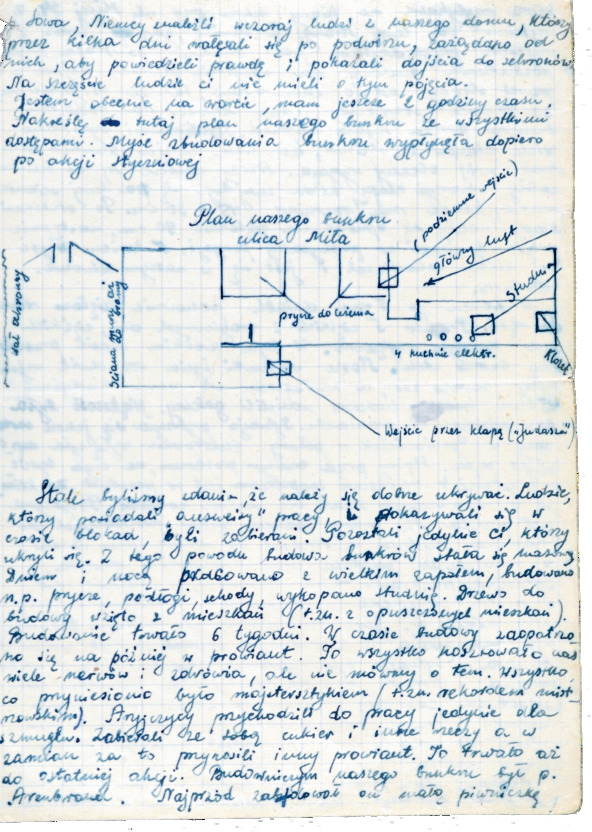 p. Sowa, Niemcy znaleźli wczoraj ludzi z naszego domu, którzy
przez kilka dni wałęsali się po podwórzu, zażądano od
nich, aby powiedzieli prawdę i pokazali dojścia do schronów.
Na szczęście ludzie ci nie mieli o tym pojęcia.
Jestem obecnie na warcie, mam jeszcze 2 godziny czasu.
Nakreślę tutaj plan naszego bunkru ze wszystkimi
dostępami. Myśl zbudowania bunkru wypłynęła dopiero
po akcji styczniowej
Plan naszego bunkru
ulica Miła
(podziemne wejście)
główny luft
Studnia
wał ochronny
ściana muru aż do bramy
prycze do leżenia
4 kuchnie elektr.
Klozet
Wejście przez klapę („Judasza")
Stale byliśmy zdania, że należy się dobrze ukrywać. Ludzie,
którzy posiadali pracy, i pokazywali się w
czasie blokad, byli zabierani. Pozostali jedynie ci, którzy
ukryli się. Z tego powodu budowa bunkrów stała się masową.
Dniem i nocą pracowano z wielkim zapałem, budowano
n.p. prycze, podłogi, schody, wykopano studnię. Drzewo do
budowy wzięto z mieszkań (t.zn. z opuszczonych mieszkań).
Budowanie trwało 6 tygodni. W czasie budowy zaopatrzo-
no się na później w prowiant. To wszystko kosztowało nas
wiele nerwów i zdrówia, ale nie mówmy o tem. Wszystko
co przyniesiono było majstersztykiem (t.zn. rekordem mist-
rzowskim). Aryjczycy przychodzili do pracy jedynie dla
szmuglu. Zabierali ze sobą cukier i inne rzeczy a w
zamian za to przynosili inny prowiant. To trwało aż
do ostatniej akcji. Budowniczym naszego bunkru był p.
Arenbrand. Najprzód on małą piwniczkę,